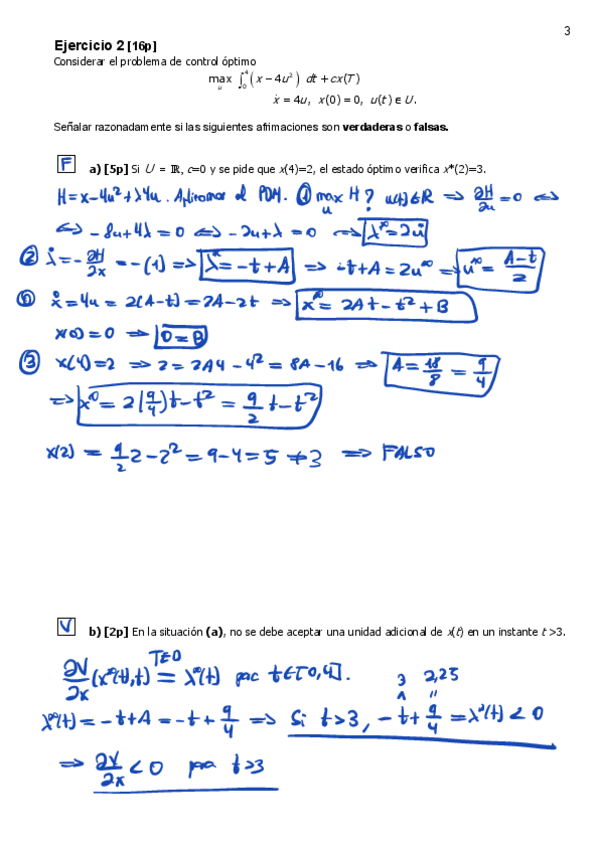 3
Ejercicio 2 [16p]
Considerar el problema de control óptimo
max_u ∫₀⁴ (x − 4u²) dt + cx(T)
ẋ = 4u, x(0) = 0, u(t) ∈ U.
Señalar razonadamente si las siguientes afirmaciones son verdaderas o falsas.
F a) [5p] Si U = ℝ, c=0 y se pide que x(4)=2, el estado óptimo verifica x*(2)=3.
H = x − 4u² + λ4u. Aplicamos el PDM. ① max_u H? u(t) ∈ R ⇒ ∂H/∂u = 0 ⇔
⇔ − 8u + 4λ = 0 ⇔ − 2u + λ = 0 ⇒ λ* = 2u
② λ̇ = − ∂H/∂x = − (1) ⇒ λ* = − t + A ⇒ − t + A = 2u* ⇒ u* = (A − t)/2
① ẋ = 4u = 2(A − t) = 2A − 2t ⇒ x* = 2At − t² + B
x(0) = 0 ⇒ 0 = B
③ x(4) = 2 ⇒ 2 = 2A4 − 4² = 8A − 16 ⇒ A = 18/8 = 9/4
⇒ x* = 2(9/4)t − t² = 9/2 t − t²
x(2) = 9/2 2 − 2² = 9 − 4 = 5 ≠ 3 ⇒ FALSO
V b) [2p] En la situación (a), no se debe aceptar una unidad adicional de x(t) en un instante t >3.
∂V/∂x (x*(t), t) = λ*(t) para t ∈ [0,4].
TEO
3 2,25
λ*(t) = − t + A = − t + 9/4 ⇒ Si t > 3, − t + 9/4 = λ*(t) < 0
⇒ ∂V/∂x < 0 para t > 3